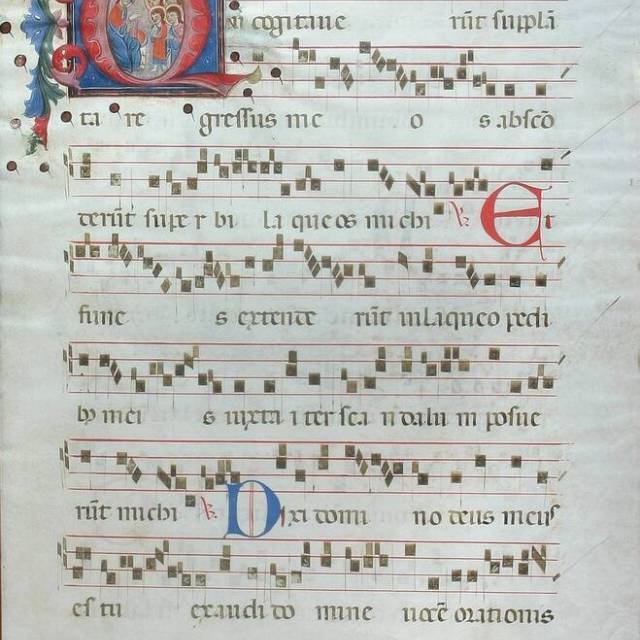 Qui cogitave rūt supplā
ta re gressus me o s abscō
derūt supe r bi la queos michi ℣ Et
fune s extende rūt in laqueo pedi
bȝ mei s iuxta i ter sca n dalū m posue
rūt michi ℣ Dixi domi no deus meus
es tu exaudi do mine vocē orationis